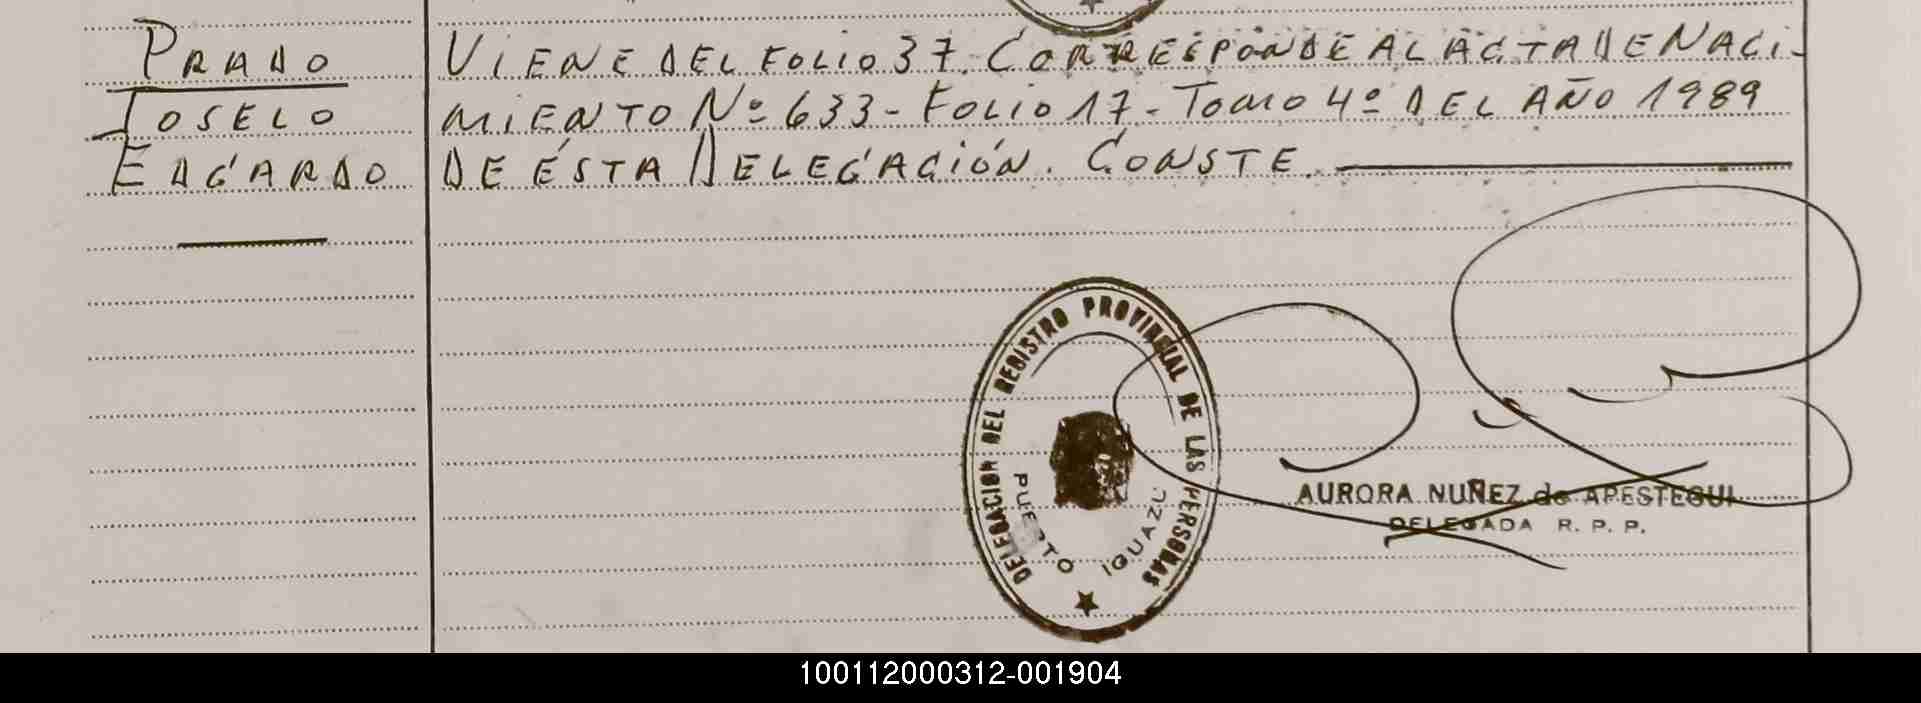 PRADO
JOSELO
EDGARDO
VIENE DEL FOLIO 37. CORRESPONDE AL ACTA DE NACI-
MIENTO Nº 633 - FOLIO 17 - TOMO 4º DEL AÑO 1989
DE ÉSTA DELEGACIÓN. CONSTE.
DELEGACION DEL REGISTRO PROVINCIAL DE LAS PERSONAS
PUERTO IGUAZU
AURORA NUÑEZ de APESTEGUI
DELEGADA R. P. P.
100112000312-001904